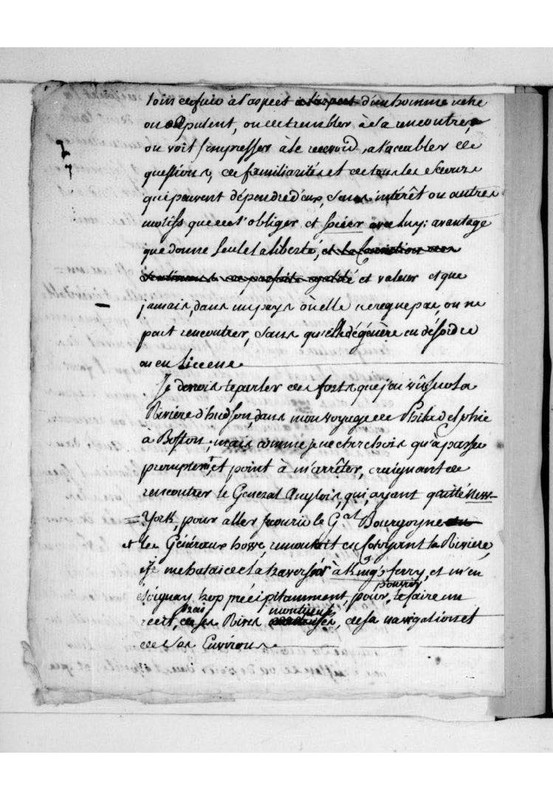 loin de fuir à l'aspect à l'aspect d'un homme riche
ou opulent, ou de trembler à sa rencontre,
on voit s'empresser à le l'accabler de
questions, de familiarités et de tous les secours
qui peuvent dépendre d'eux, sans intérêt ou autres
motifs que de l'obliger et avec luy: avantage
que donne seule la liberté, et la
sentiments de parfaite égalité et valeur et que
jamais, dans un pays où elle ne regne pas, on ne
peut rencontrer, sans qu'elle dégénère en désordre
ou en licence
Je devois te parler des forts que j'ai vûs sur la
Rivière d'hudson, dans mon voyage de Philadelphie
à Boston, mais comme je ne cherchois qu'à passer
promptemt et point à m'arrêter, craignant de
rencontrer le Général Anglois, qui ayant quitté New-
York, pour aller secourir le Gal Bourgoyne
et le Général howe, remontoit en la Rivière
je me hatai de la traverser à King's ferry, et m'en
éloignay trop précipitamment, pour pouvoir te faire un
récit vrai de ses Rives montueuses, de sa navigation et
de ses Environs.